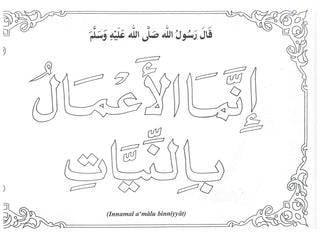 قَالَ رَسُولُ الله صَلَّى الله عَلَيْهِ وَسَلَّمَ
إِنَّمَا الأَعْمَالُ
بِالنِّيَّاتِ
(Innamal a'mâlu binniyyât)